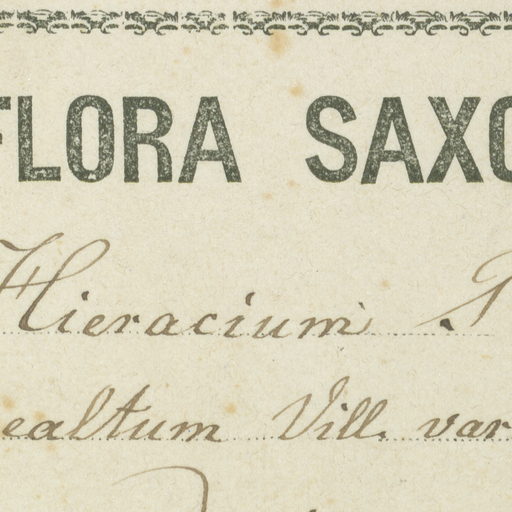 FLORA SAXO
Hieracium P
ealtum Vill. var